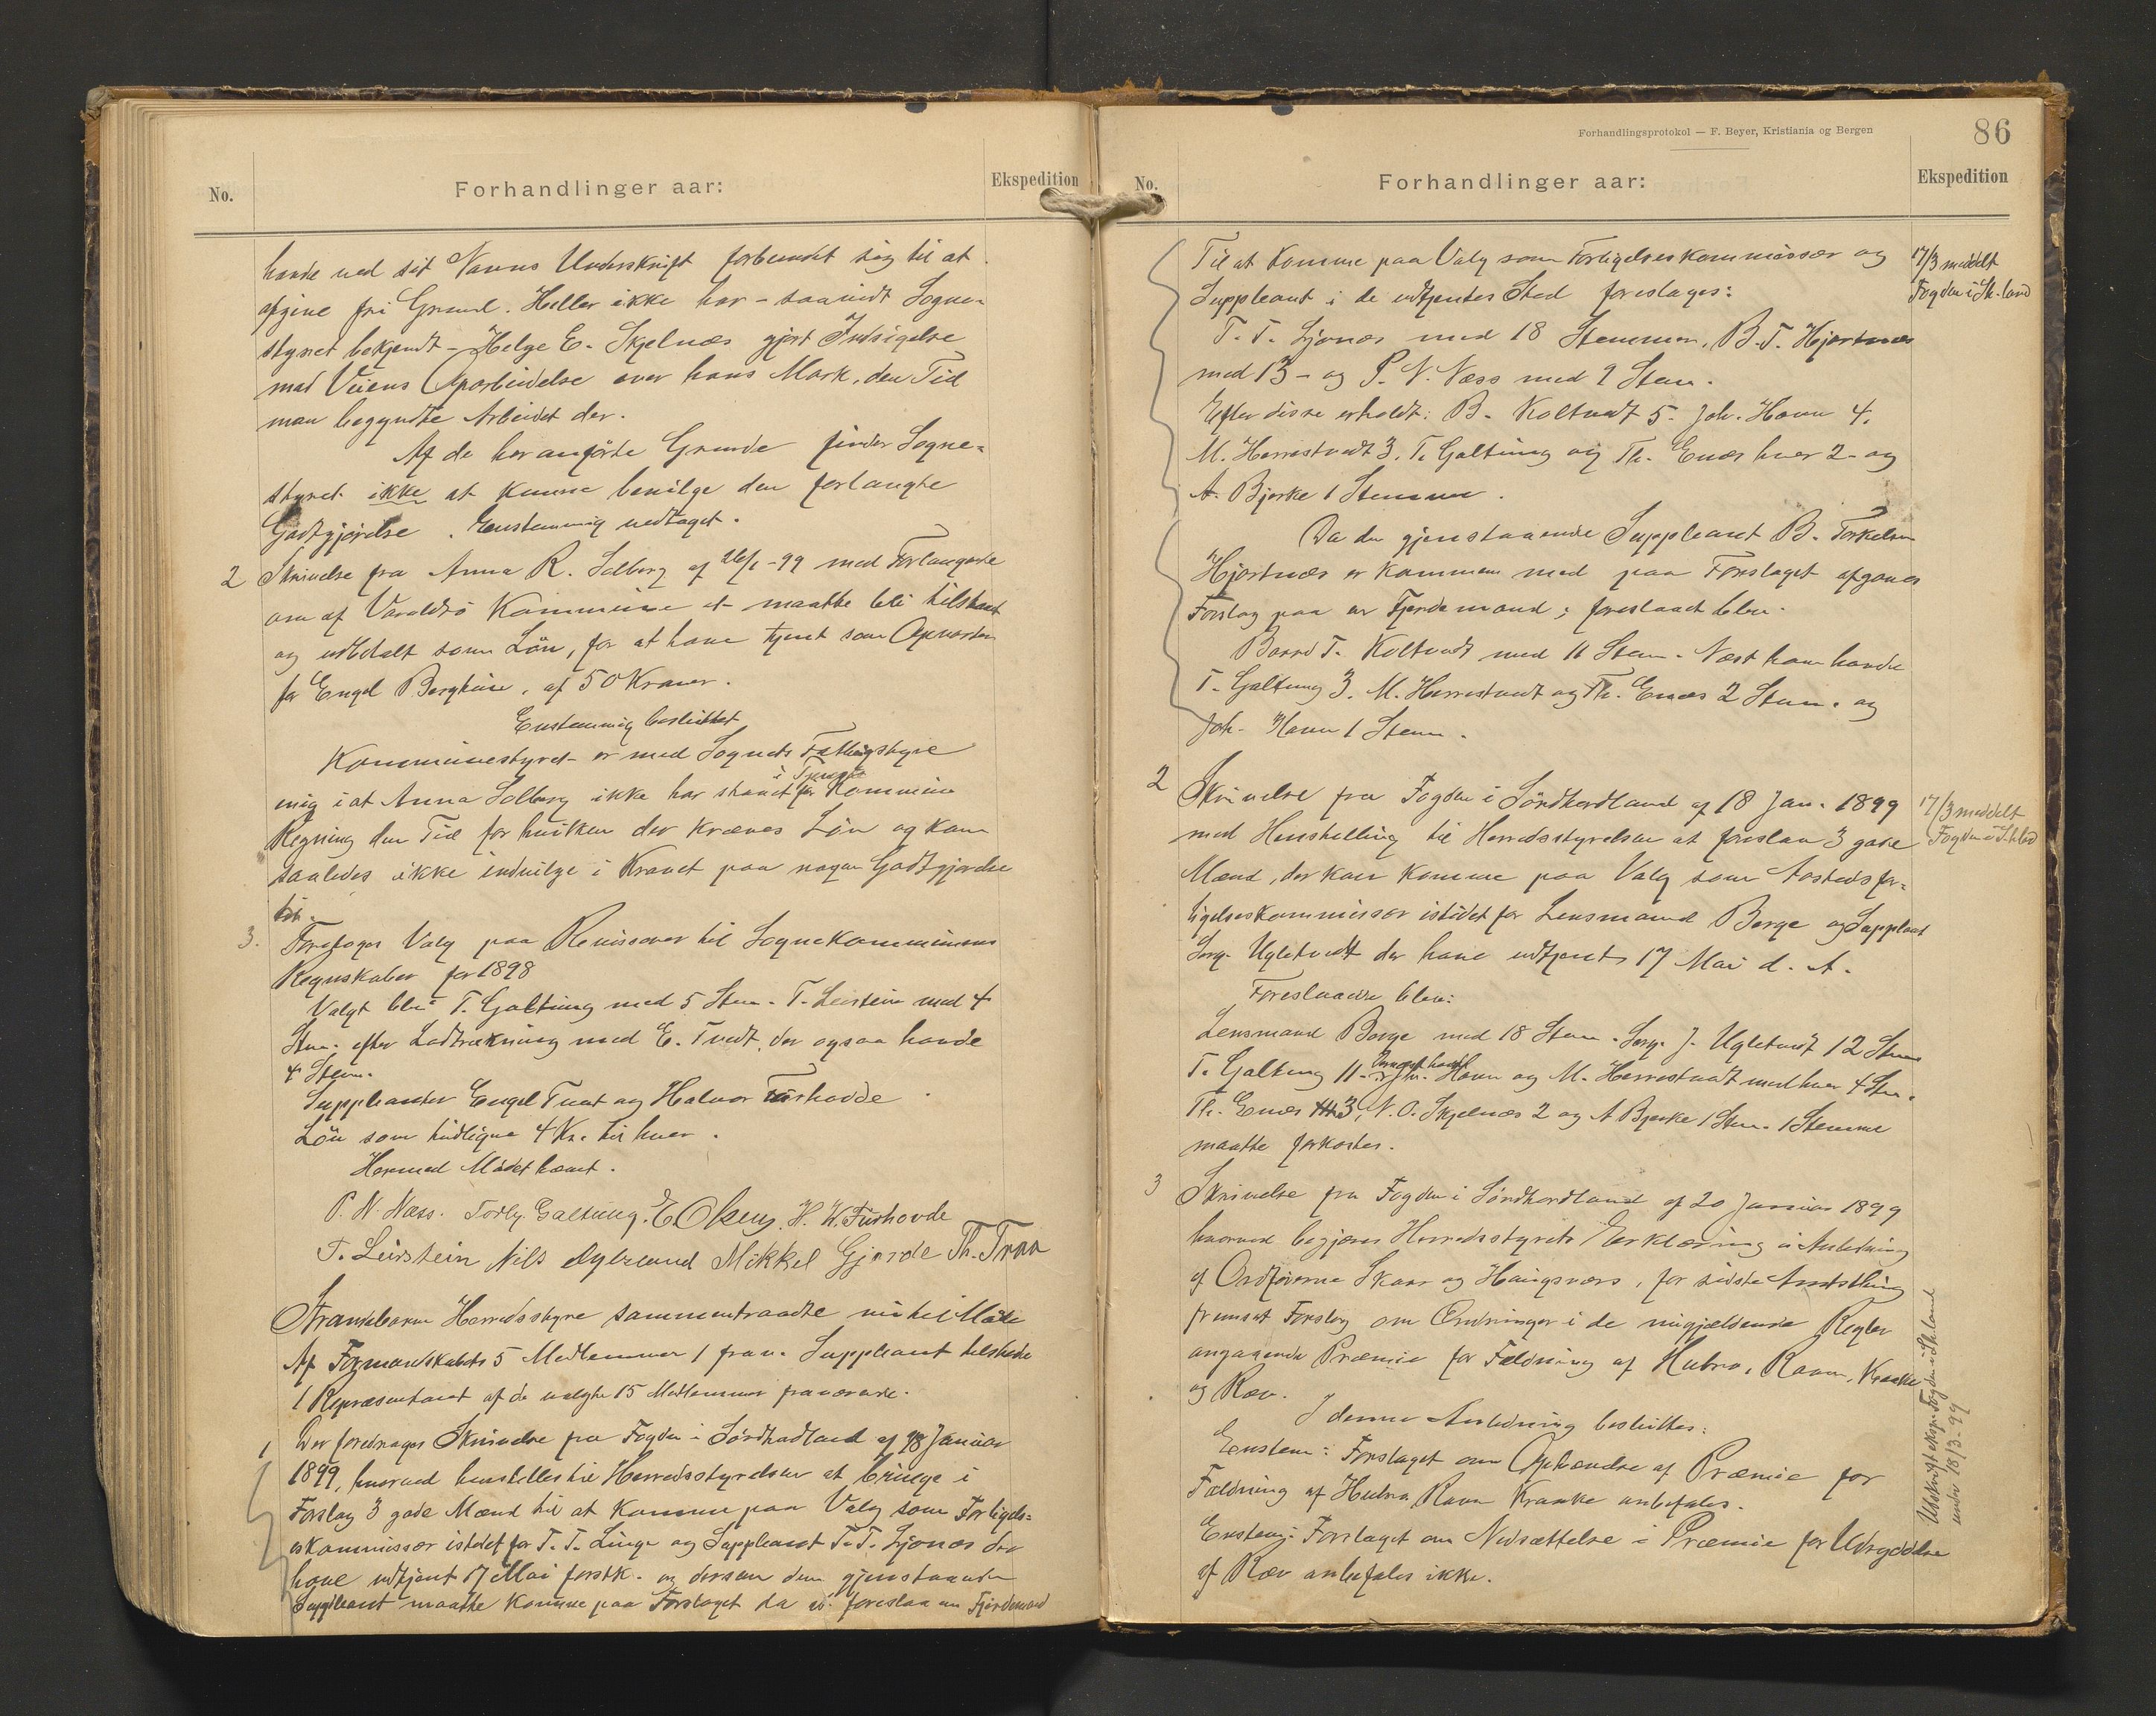 No.
Forhandlinger aar:
Ekspedition
havde ved sit Navns Underskrift forbundet sig til at
afgive fri Grund. Heller ikke har - saavidt Sogne-
styret bekjendt - Helge E. Skjelnæs gjort Indsigelse
mod Veiens Oparbeidelse over hans Mark, den Tid
man begyndte Arbeidet der.
Af de her anførte Grunde finder Sogne-
styret ikke at kunne bevilge den forlangte
Godtgjørelse. Enstemmig vedtaget.
2 Skrivelse fra Anna R. Solberg af 26/1-99 med Forlangende
om af Varaldsö Kommune at maatte bli tilstaaet
og udbetalt som Lön, for at have tjent som Opvarter
for Engel Berghuse, af 50 Kroner.
Enstemmig besluttet
Kommunestyret er med Sognets Fattigstyre
i Tjeneste
enig i at Anna Solberg ikke har staaet for Kommunens
Regning den Tid for hvilken der kræves Lön og kan
saaledes ikke indvilge i Kravet paa nogen Godtgjørelse
3. Foretoges Valg paa Revisorer til Sognekommunens
Regnskaber for 1898
Valgt blev T. Galtung med 5 Stem. T. Leirstein med 4
Stem. efter Lodtrækning med E. Tvedt, der ogsaa havde
4 Stem.
Suppleanter Engel Tvedt og Halvor Furhovde
Lön som tidligere 4 Kr. til hver.
Hermed Mödet hævet.
P. N. Næss. Torbj. Galtung. E. Olsen. H. H. Furhovde
T. Leirstein Nils Dybesund Mikkel Gjerde Th. Traa
Strandebarm Herredsstyre sammentraadte nu til Möde
Af Formandskabets 5 Medlemmer 1 frav. Suppleant tilstede
1 Repræsentant af de valgte 15 Medlemmer fraværende.
1 Der foredroges Skrivelse fra Fogden i Söndhordland af 18 Januar
1899, hvorved henstilles til Herredsstyrelsen at bringe i
Forslag 3 gode Mænd til at komme paa Valg som Forligels-
eskommissær istedet for T. T. Linge og Suppleant T. T. Ljonæs der
have udtjent 17 Mai förstk. og dersom den gjenstaaende
Suppleant maatte komme paa Forslaget da at foreslaa en Fjerdemand
Forhandlingsprotokol — F. Beyer, Kristiania og Bergen
86
No.
Forhandlinger aar:
Ekspedition
Til at komme paa Valg som Forligelseskommissær og
Suppleant i de udtjentes Sted foreslages:
17/3 meddelt
Fogden i Sh.land
T. T. Ljonæs med 18 Stemmer, B. T. Hjortnæs
med 13 - og P. N. Næss med 9 Stem.
Efter disse erholdt: B. Koltvedt 5. Joh. Havn 4.
M. Herrestvedt 3. T. Galtung og Th. Enæs hver 2 - og
A. Bjerke 1 Stemme.
Da den gjenstaaende Suppleant B. Torkelsen
Hjortnæs er kommen med paa Forslaget afgaves
Forslag paa en Fjerdemand; foreslaaet blev.
Baard T. Koltvedt med 11 Stem. Næst ham havde
T. Galtung 3. M. Herrestvedt og Th. Enæs 2 Stem. og
Joh. Havn 1 Stem.
2 Skrivelse fra Fogden i Söndhordland af 18 Jan. 1899
med Henstilling til Herredsstyrelsen at foreslaa 3 gode
17/3 meddelt
Fogden i S.hld
Mænd, der kan komme paa Valg som Aastedsfor-
ligelseskommissær istedet for Lensmand Berge og Suppleant
Serg. Ugletvedt der have udtjent 17 Mai d. A.
Foreslaaede blev:
Lensmand Berge med 18 Stem. Serg. J. Ugletvedt 12 Stem
Dernæst havde
T. Galtung 11. Joh. Havn og M. Herrestvedt med hver 4 Stem.
Th. Enæs 3, N. O. Skjelnæs 2 og A Bjerke 1 Stem. 1 Stemme
maatte forkastes.
3 Skrivelse fra Fogden i Söndhordland af 20 Januar 1899
hvorved begjæres Herredsstyrets Erklæring i Anledning
af Ordförerne Skaar og Haugsværs, for sidste Amtsthing
fremsat Forslag om Ændringer i de nugjældende Regler
angaaende Præmie for Fældning af Hubro, Ravn, Kraake
og Ræv.
I denne Anledning besluttes:
Enstem: Forslaget om Ophævelse af Præmie for
Fældning af Hubro, Ravn Kraake anbefales.
Enstem: Forslaget om Nedsættelse i Præmie for Udryddelse
af Ræv anbefales ikke.
Udskrift eksp. Fogden i Sh.land
under 18/3-99